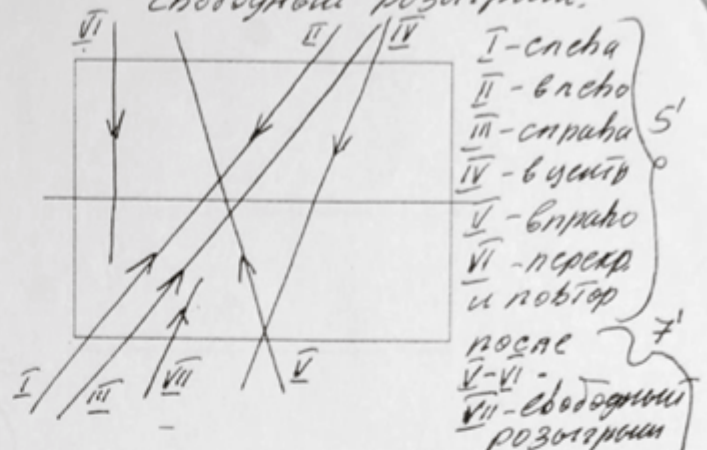 свободный розыгрыш.
VI
II
IV
I - слева
II - влево
III - справа
IV - в центр
V - вправо
VI - перекр.
и повтор
5'
7'
после
V-VI -
VII - свободный
розыгрыш
I
III
VII
V